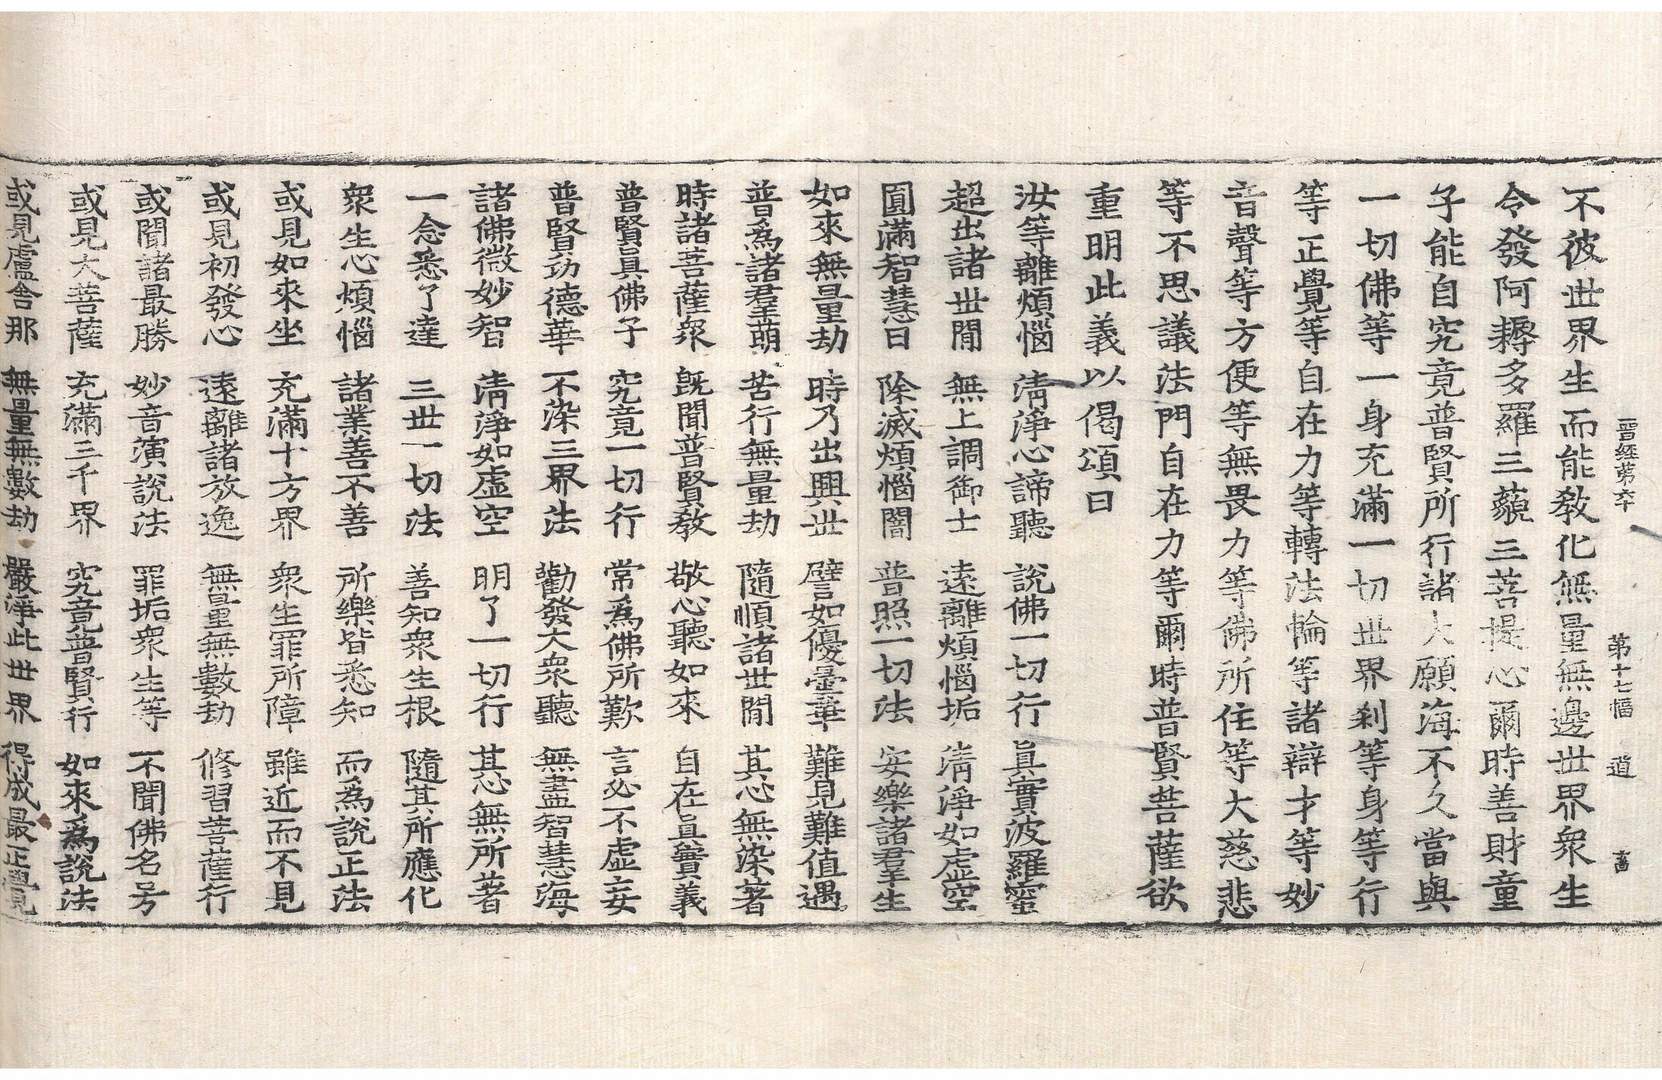 晉經第六十 第十七幅 道 畜
不彼世界生而能教化無量無邊世界衆生
令發阿耨多羅三藐三菩提心爾時善財童
子能自究竟普賢所行諸大願海不久當與
一切佛等一身充滿一切世界刹等身等行
等正覺等自在力等轉法輪等諸辯才等妙
音聲等方便等無畏力等佛所住等大慈悲
等不思議法門自在力等爾時普賢菩薩欲
重明此義以偈頌曰
汝等離煩惱 淸淨心諦聽 說佛一切行 眞實波羅蜜
超出諸世間 無上調御士 遠離煩惱垢 淸淨如虛空
圓滿智慧日 除滅煩惱闇 普照一切法 安樂諸羣生
如來無量劫 時乃出興世 譬如優曇華 難見難値遇
普爲諸羣萌 苦行無量劫 隨順諸世間 其心無染著
時諸菩薩衆 旣聞普賢教 敬心聽如來 自在眞實義
普賢眞佛子 究竟一切行 常爲佛所歎 言必不虛妄
普賢功德華 不染三界法 勸發大衆聽 無盡智慧海
諸佛微妙智 淸淨如虛空 明了一切行 其心無所著
一念悉了達 三世一切法 善知衆生根 隨其所應化
衆生心煩惱 諸業善不善 所樂皆悉知 而爲說正法
或見如來坐 充滿十方界 衆生罪所障 雖近而不見
或見初發心 遠離諸放逸 無量無數劫 修習菩薩行
或聞諸最勝 妙音演說法 罪垢衆生等 不聞佛名号
或見大菩薩 充滿三千界 究竟普賢行 如來爲說法
或見盧舍那 無量無數劫 嚴淨此世界 得成最正覺